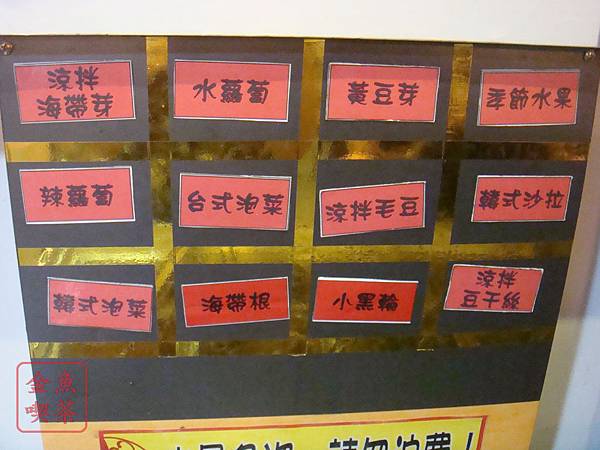 涼拌
海帶芽
水蘿蔔
黃豆芽
季節水果
辣蘿蔔
台式泡菜
涼拌毛豆
韓式沙拉
韓式泡菜
海帶根
小黑輪
涼拌
豆干絲
請勿浪費！
金魚
喫茶